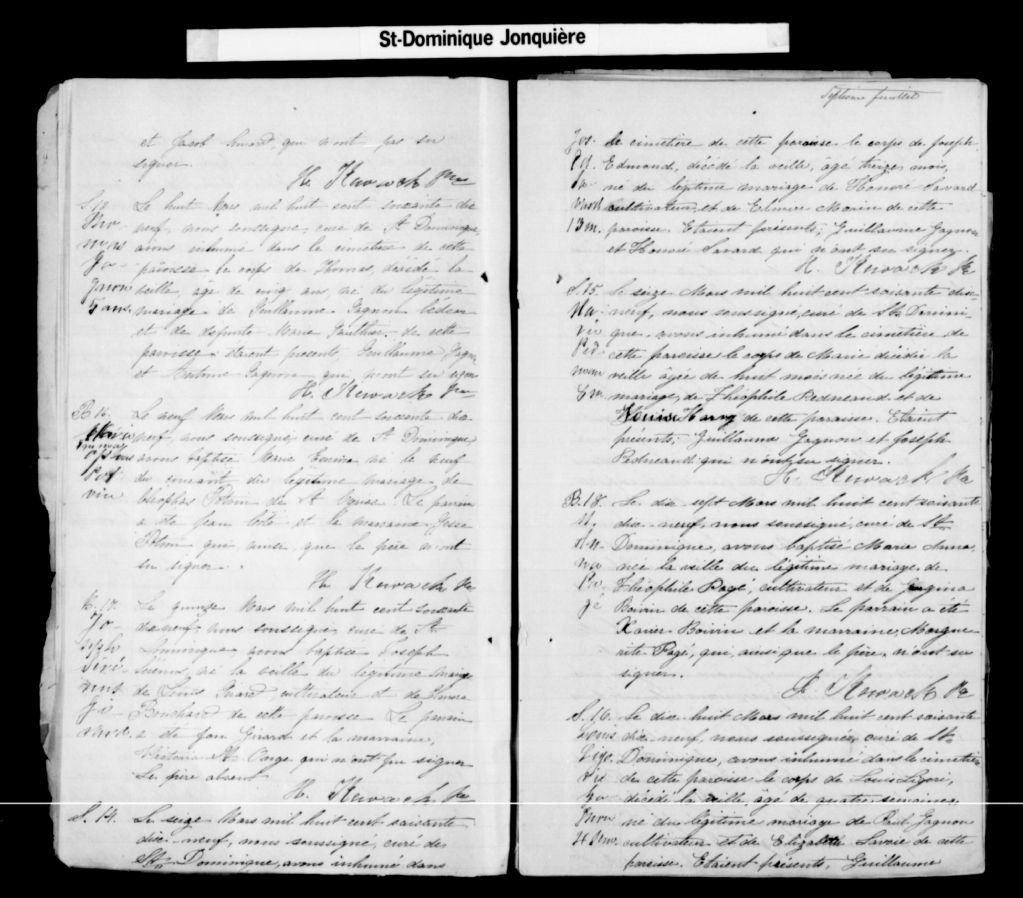 St-Dominique Jonquière
et Jacob Simard, qui n'ont pas su
signer.
H. Kerouack Ptre
S. 13. Le huit Mars mil huit cent soixante dix
Tho- neuf, nous soussigné, curé de St Dominique,
mas avons inhumé dans le cimetière de cette
Ga- paroisse le corps de Thomas, décédé la
gnon veille, âgé de cinq ans, né du légitime
5 ans. mariage de Guillaume Gagnon
et de défunte Marie Gauthier de cette
paroisse. Etaient présents, Guillaume Gagnon
et Gagnon qui n'ont su signer
H. Kerouack Ptre
B. 16. Le neuf Mars mil huit cent soixante dix
Marie neuf, nous soussigné, curé de St Dominique
avons baptisé Marie né le neuf
Pot- du courant du légitime mariage de
vin Théophas Potvin de St Le parrain
a été Jean Coté et la marraine
Potvin qui ainsi que le père n'ont
su signer.
H. Kerouack Ptre
B. 17. Le quinze Mars mil huit cent soixante
Jo- dix neuf, nous soussigné, curé de St
seph Dominique avons baptisé Joseph
né la veille du légitime mariage
de Louis Girard cultivateur et de
Gi- Bouchard de cette paroisse Le parrain
rard. a été Girard et la marraine,
St Onge qui n'ont pu signer
Le père absent
H. Kerouack Ptre
S. 14. Le seize Mars mil huit cent soixante
dix-neuf, nous soussigné, curé de
St Dominique, avons inhumé dans
Septième feuillet
Jos. le cimetière de cette paroisse le corps de Joseph
Ed. Edmond, décédé la veille, âgé treize mois,
Sa- né du légitime mariage de Honoré Savard
vard cultivateur, et de Elmire Morin de cette
13 m. paroisse. Etaient présents; Guillaume Gagnon
et Honoré Savard qui n'ont su signer.
H. Kerouack Ptre
S. 15. Le seize Mars mil huit cent soixante dix-
Ma- neuf, nous soussigné, curé de St Domini-
rie que, avons inhumé dans le cimetière de
Ped- cette paroisse le corps de Marie décédée la
neau veille âgée de huit mois née du légitime
8 m. mariage, de Théophile Pedneaud et de
Louise Harvey de cette paroisse. Etaient
présents; Guillaume Gagnon et Joseph
Pedneaud qui n'ont su signer.
H. Kerouack Ptre
B. 18. Le dix sept Mars mil huit cent soixante
M. dix-neuf, nous soussigné, curé de St
An- Dominique, avons baptisé Marie Anna,
na née la veille du légitime mariage de
Pa- Théophile Pagé, cultivateur et de Georgina
gé Boivin de cette paroisse. Le parrain a été
Xavier Boivin et la marraine, Margue-
rite Pagé, qui, ainsi que le père, n'ont su
signer.
H. Kerouack Ptre
S. 16. Le dix huit Mars mil huit cent soixante
Louis dix neuf, nous soussigné, curé de St-
Ligo- Dominique, avons inhumé dans le cimetière
ri de cette paroisse le corps de Louis Ligori,
Ga- décédé la veille, âgé de quatre semaines,
gnon né du légitime mariage de Gagnon
4 sem. cultivateur et de Elizabeth Savoie de cette
paroisse. Etaient présents, Guillaume